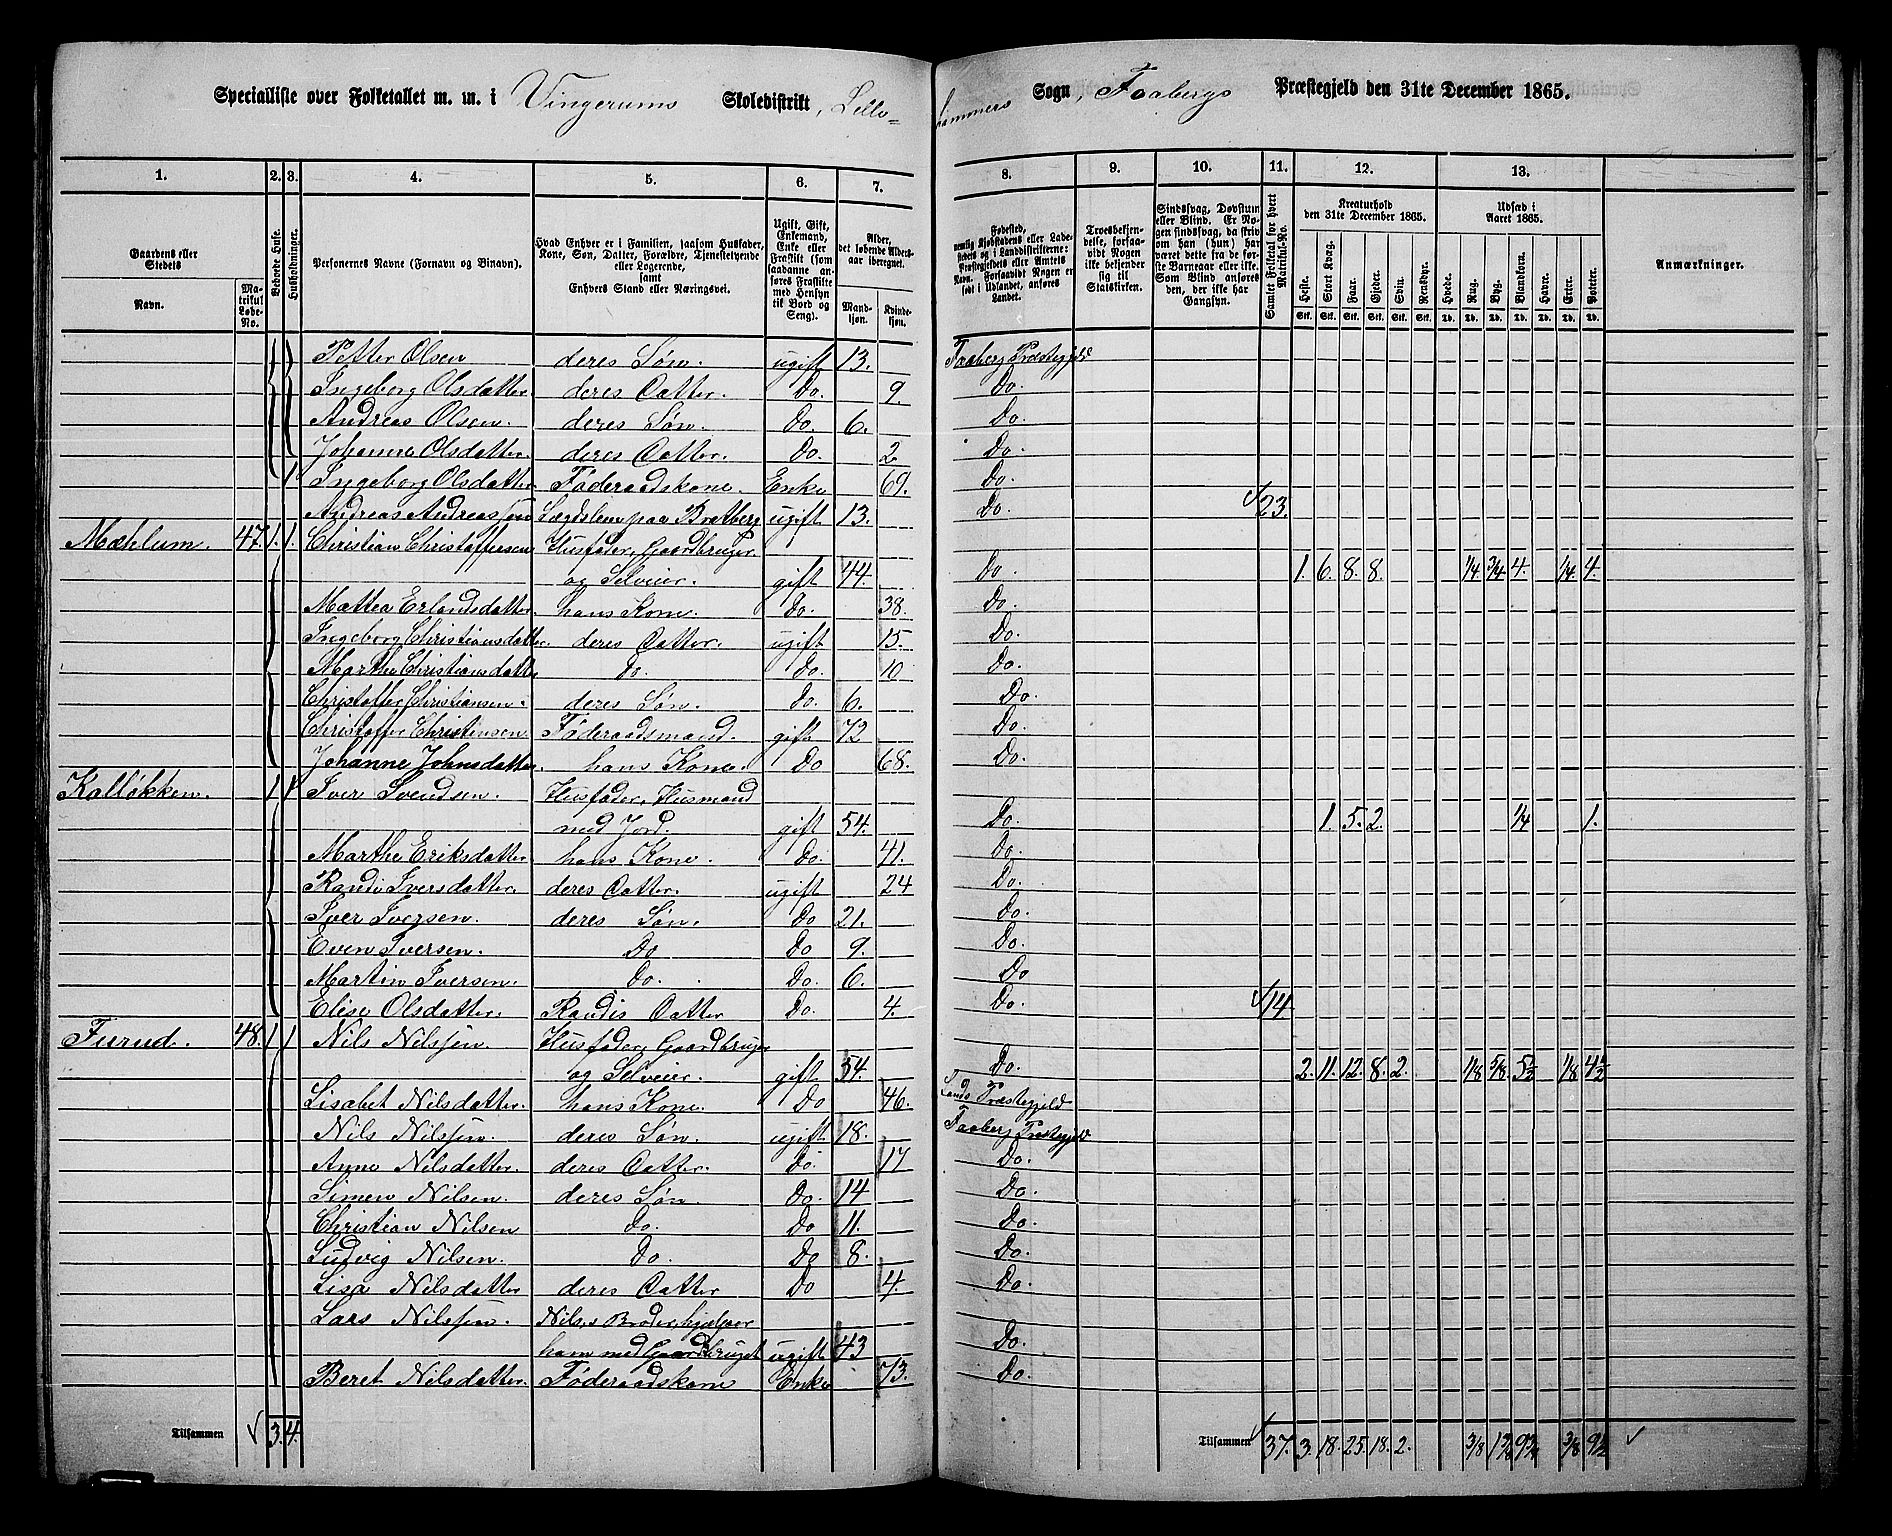 Specialliste over Folketallet m. m. i Vingerums Skoledistrikt, Lille=
hammers Sogn, Faabergs Præstegjeld den 31te December 1865.
1. 2. 3. 4. 5. 6. 7. 8. 9. 10. 11. 12. 13.
Gaardens eller Stedets
Navn. Matrikul Løbe-No.
Beboede Huse.
Husholdninger.
Personernes Navne (Fornavn og Binavn).
Hvad Enhver er i Familien, saasom Husfader, Kone, Søn, Datter, Forældre, Tjenestetyende eller Logerende, samt Enhvers Stand eller Næringsvei.
Ugift, Gift, Enkemand, Enke eller Fraskilt (som saadanne anføres Fraskilte med Hensyn til Bord og Seng).
Alder, det løbende Aldersaar iberegnet.
Mandkjøn. Kvindekjøn.
Fødested, nemlig Kjøbstadens eller Ladestedets og i Landdistrikterne: Præstegjeldets eller Amtets Navn. Forsaavidt Nogen er født i Udlandet, anføres Landet.
Troesbekjendelse, forsaavidt Nogen ikke bekjender sig til Statskirken.
Sindssvag, Døvstum eller Blind. Er Nogen sindssvag, da skriv om han (hun) har været dette fra de første Barneaar eller ikke. Som Blind anføres den, der ikke har Gangsyn.
Samlet Folketal for hvert Matrikul-No.
Kreaturhold den 31te December 1865.
Heste. Stort Kvæg. Faar. Gjeder. Svin. Rensdyr.
Udsæd i Aaret 1865.
Hvede. Rug. Byg. Blandkorn. Havre. Erter. Poteter.
Anmærkninger.
Petter Olsen deres Søn. ugift 13. Faaberg Præstegjeld
Ingeborg Olsdatter deres Datter. Do. 9. Do.
Andreas Olsen. deres Søn. Do. 6. Do.
Johanne Olsdatter. deres Datter. Do. 2 Do.
1 Ingeborg Olsdatter Føderaadskone. Enke 69. Do.
Andreas Andreassen Lægdslem paa Bratberg ugift 13. Do. 23.
Mæhlum. 47. 1. 1. Christian Christoffersen Husfader, Gaardbruger
og Selveier. gift 44. Do. 1. 6. 8. 8. 1/4 3/4 4. 1/4 4.
Mattea Erlandsdatter. hans Kone. Do. 38. Do.
Ingeborg Christiansdatter. deres Datter. ugift 15. Do.
Marthe Christiansdatter do. Do. 10 Do.
Christoffer Christiansen. deres Søn. Do. 6. Do.
Christoffer Christensen Føderaadsmand. gift 72 Do.
Johanne Johnsdatter. hans Kone. Do 68. Do.
Kalløkken. 1 1 Iver Svendsen. Husfader, Husmand
med Jord. gift 54. Do. 1. 5. 2. 1/4 1.
Marthe Eriksdatter hans Kone. Do. 41. Do.
Randi Iversdatter. deres Datter. ugift 24 Do.
Iver Iversen. deres Søn. Do 21. Do.
Even Iversen. Do Do 9. Do.
Martin Iversen. Do. Do. 6. Do
Elise Olsdatter. Randis Datter Do. 4. Do. 14.
Furud. 48. 1 1 Nils Nilssen. Husfader, Gaardbruger
og Selveier. gift 54. Do. 2. 11. 12. 8. 2. 1/8 5/8. 5 1/2 1/8 4 1/2
Lisabet Nilsdatter. hans Kone. Do 46. Lands Præstegjeld
Nils Nilssen. deres Søn. ugift 18. Faaberg Præstegjeld
Anne Nilsdatter. deres Datter. Do. 17 Do.
Simen Nilsen. deres Søn. Do. 14 Do.
Christian Nilsen Do. Do 11. Do.
Ludvig Nilsen. Do. Do 8. Do.
Lisa Nilsdatter deres Datter Do 4. Do.
Lars Nilssen. Nils's Broder, hjælper
ham med Gaardbruget ugift 43 Do.
Beret Nilsdatter. Føderaadskone Enke 73. Do.
Tilsammen 3. 4. Tilsammen 37. 3. 18. 25. 18. 2. 3/8 1 3/8 9 3/4 3/8 9 1/2